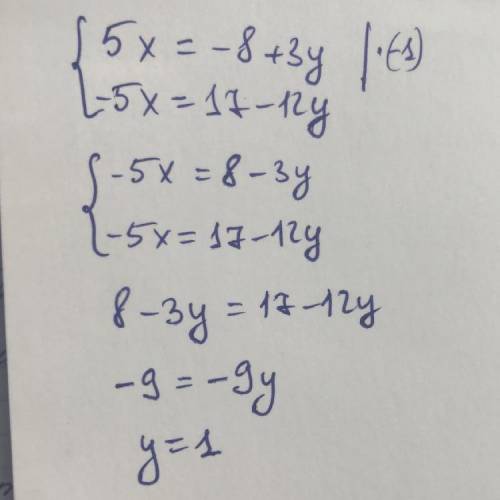 5x = -8 + 3y | ·(-1)
-5x = 17 - 12y
-5x = 8 - 3y
-5x = 17 - 12y
8 - 3y = 17 - 12y
-9 = -9y
y = 1